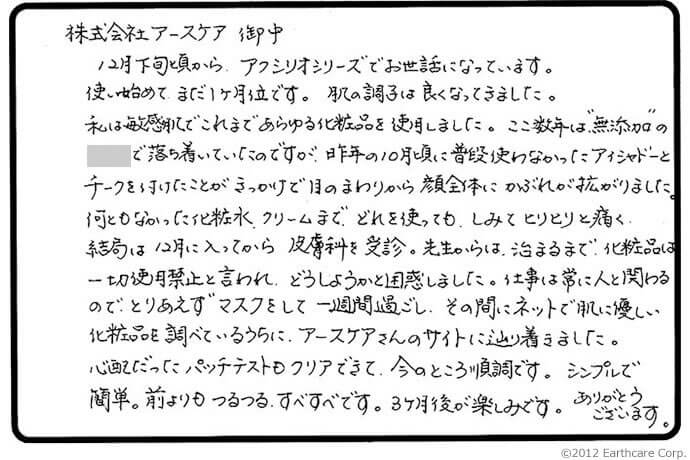 株式会社アースケア 御中
12月下旬頃から、アクシリオシリーズでお世話になっています。
使い始めて、まだ1ヶ月位です。肌の調子は良くなってきました。
私は敏感肌でこれまであらゆる化粧品を使用しました。ここ数年は"無添加"の
で落ち着いていたのですが、昨年の10月頃に普段使わなかったアイシャドーと
チークを付けたことがきっかけで目のまわりから顔全体にかぶれが拡がりました。
何ともなかった化粧水、クリームまで、どれを使っても、しみてヒリヒリと痛く、
結局は12月に入ってから 皮膚科を受診。先生からは、治まるまで、化粧品は
一切使用禁止と言われ、どうしようかと困惑しました。仕事は常に人と関わる
ので、とりあえずマスクをして一週間過ごし、その間にネットで肌に優しい
化粧品を調べているうちに、アースケアさんのサイトに辿り着きました。
心配だったパッチテストもクリアできて、今のところ順調です。シンプルで
簡単。前よりもつるつる、すべすべです。3ヶ月後が楽しみです。ありがとう
ございます。
©2012 Earthcare Corp.